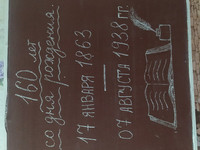 160 лет
со дня рождения.
17 ЯНВАРЯ 1863
07 АВГУСТА 1938 гг.